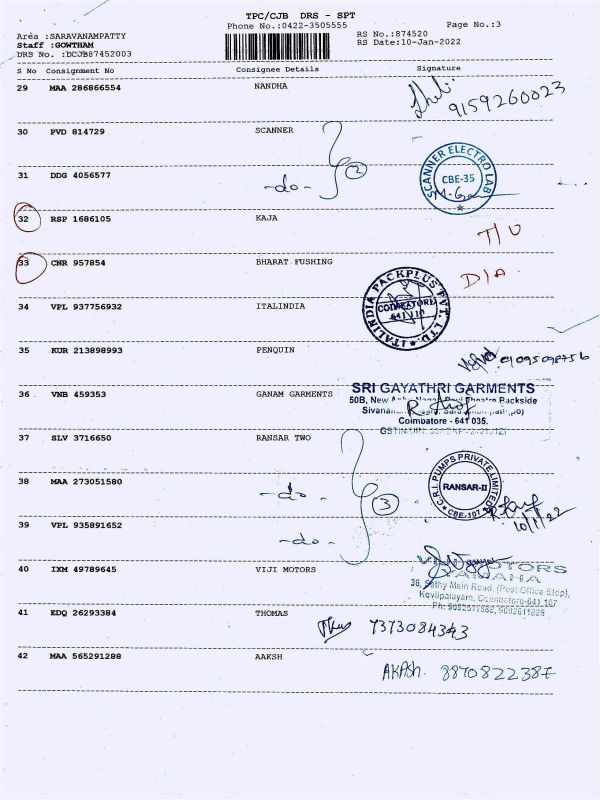 TPC/CJB DRS - SPT
Phone No.:0422-3505555
Page No.:3
Area :SARAVANAMPATTY
Staff :GOWTHAM
DRS No. :DCJB87452003
RS No.:874520
RS Date:10-Jan-2022
S No Consignment No Consignee Details Signature
29 MAA 286866554 NANDHA
9159260023
30 PVD 814729 SCANNER
31 DDG 4056577 -do- 2
SCANNER ELECTRO LAB
CBE-35
32 RSP 1686105 KAJA
33 CNR 957854 BHARAT FUSHING
D/A.
34 VPL 937756932 ITALINDIA
ITALINDIA PACKPLUS PVT. LTD.
COIMBATORE
641 110
35 KUR 213898993 PENQUIN
36 VNB 459353 GANAM GARMENTS
SRI GAYATHRI GARMENTS
50B, New Theatre Backside
Coimbatore - 641 035.
37 SLV 3716650 RANSAR TWO
38 MAA 273051580 -do- 3
C.R.I. PUMPS PRIVATE LIMITED
RANSAR-II
CBE-107
10/1/22
39 VPL 935891652 -do-
40 IXM 49789645 VIJI MOTORS
MOTORS
YAMAHA
36, Sathy Main Road, (Post Office Stop),
Kovilpalayam, Coimbatore-641 107
41 EDQ 26293384 THOMAS
7373084343
42 MAA 565291288 AAKSH
AKASh. 8870822387